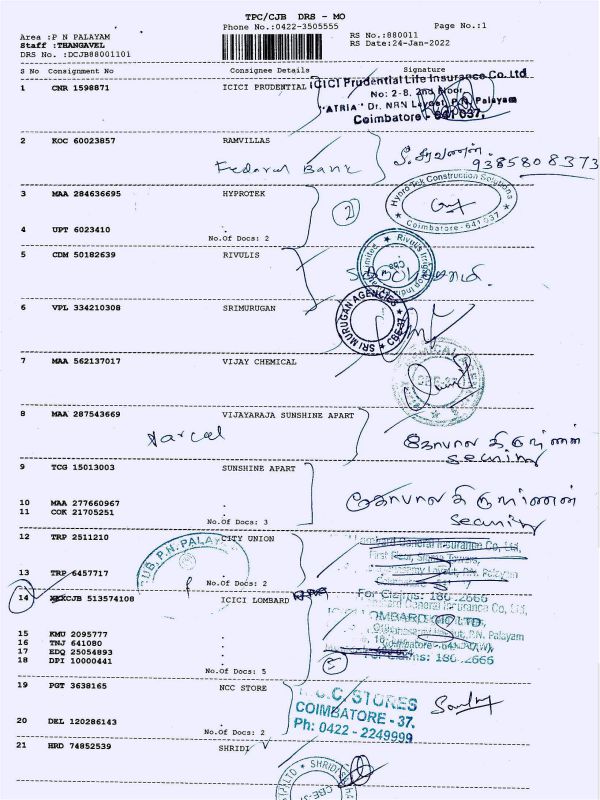 TPC/CJB DRS - MO
Phone No.:0422-3505555 Page No.:1
Area :P N PALAYAM RS No.:880011
Staff :THANGAVEL RS Date:24-Jan-2022
DRS No. :DCJB88001101
S No Consignment No Consignee Details Signature
1 CNR 1598871 ICICI PRUDENTIAL
ICICI Prudential Life Insurance Co. Ltd
No: 2-8, 2nd Floor,
"ATRIA" Dr. NRN Layout, P.N. Palayam
Coimbatore - 641 037.
2 KOC 60023857 RAMVILLAS
Federal Bank
சரவணன்
9385808373
3 MAA 284636695 HYPROTEK
Hypro Tek Construction Solutions
★ Coimbatore - 641 037 ★
2
4 UPT 6023410 :
No.Of Docs: 2
5 CDM 50182639 RIVULIS
Rivulis Irrigation India Private Limited
CBE
6 VPL 334210308 SRIMURUGAN
SRI MURUGAN AGENCIES
★ CBE-37 ★
7 MAA 562137017 VIJAY CHEMICAL
CBE-37
8 MAA 287543669 VIJAYARAJA SUNSHINE APART
Parcel
கோபால கிருஷ்ணன்
Security
9 TCG 15013003 SUNSHINE APART
10 MAA 277660967 :
11 COK 21705251 :
கோபால கிருஷ்ணன்
Security
No.Of Docs: 3
12 TRP 2511210 CITY UNION
UB, P.N. PALAY
Lombard General Insurance Co, Ltd,
First Floor,
Layout, P.N. Palayam
Coimbatore
13 TRP 6457717 :
No.Of Docs: 2
For Claims: 186 2666
14 CJB 513574108 ICICI LOMBARD
Lombard General Insurance Co, Ltd,
LOMBARD GIC LTD
P.N. Palayam
15 KMU 2095777 :
16 TNJ 641080 :
17 EDQ 25054893 :
18 DPI 10000441 :
For Claims: 186 2666
No.Of Docs: 5
19 PGT 3638165 NCC STORE
N.C.C. STORES
COIMBATORE - 37.
Ph: 0422 - 2249999
20 DEL 120286143 :
No.Of Docs: 2
21 HRD 74852539 SHRIDI
★ SHRIDI
CBE-37